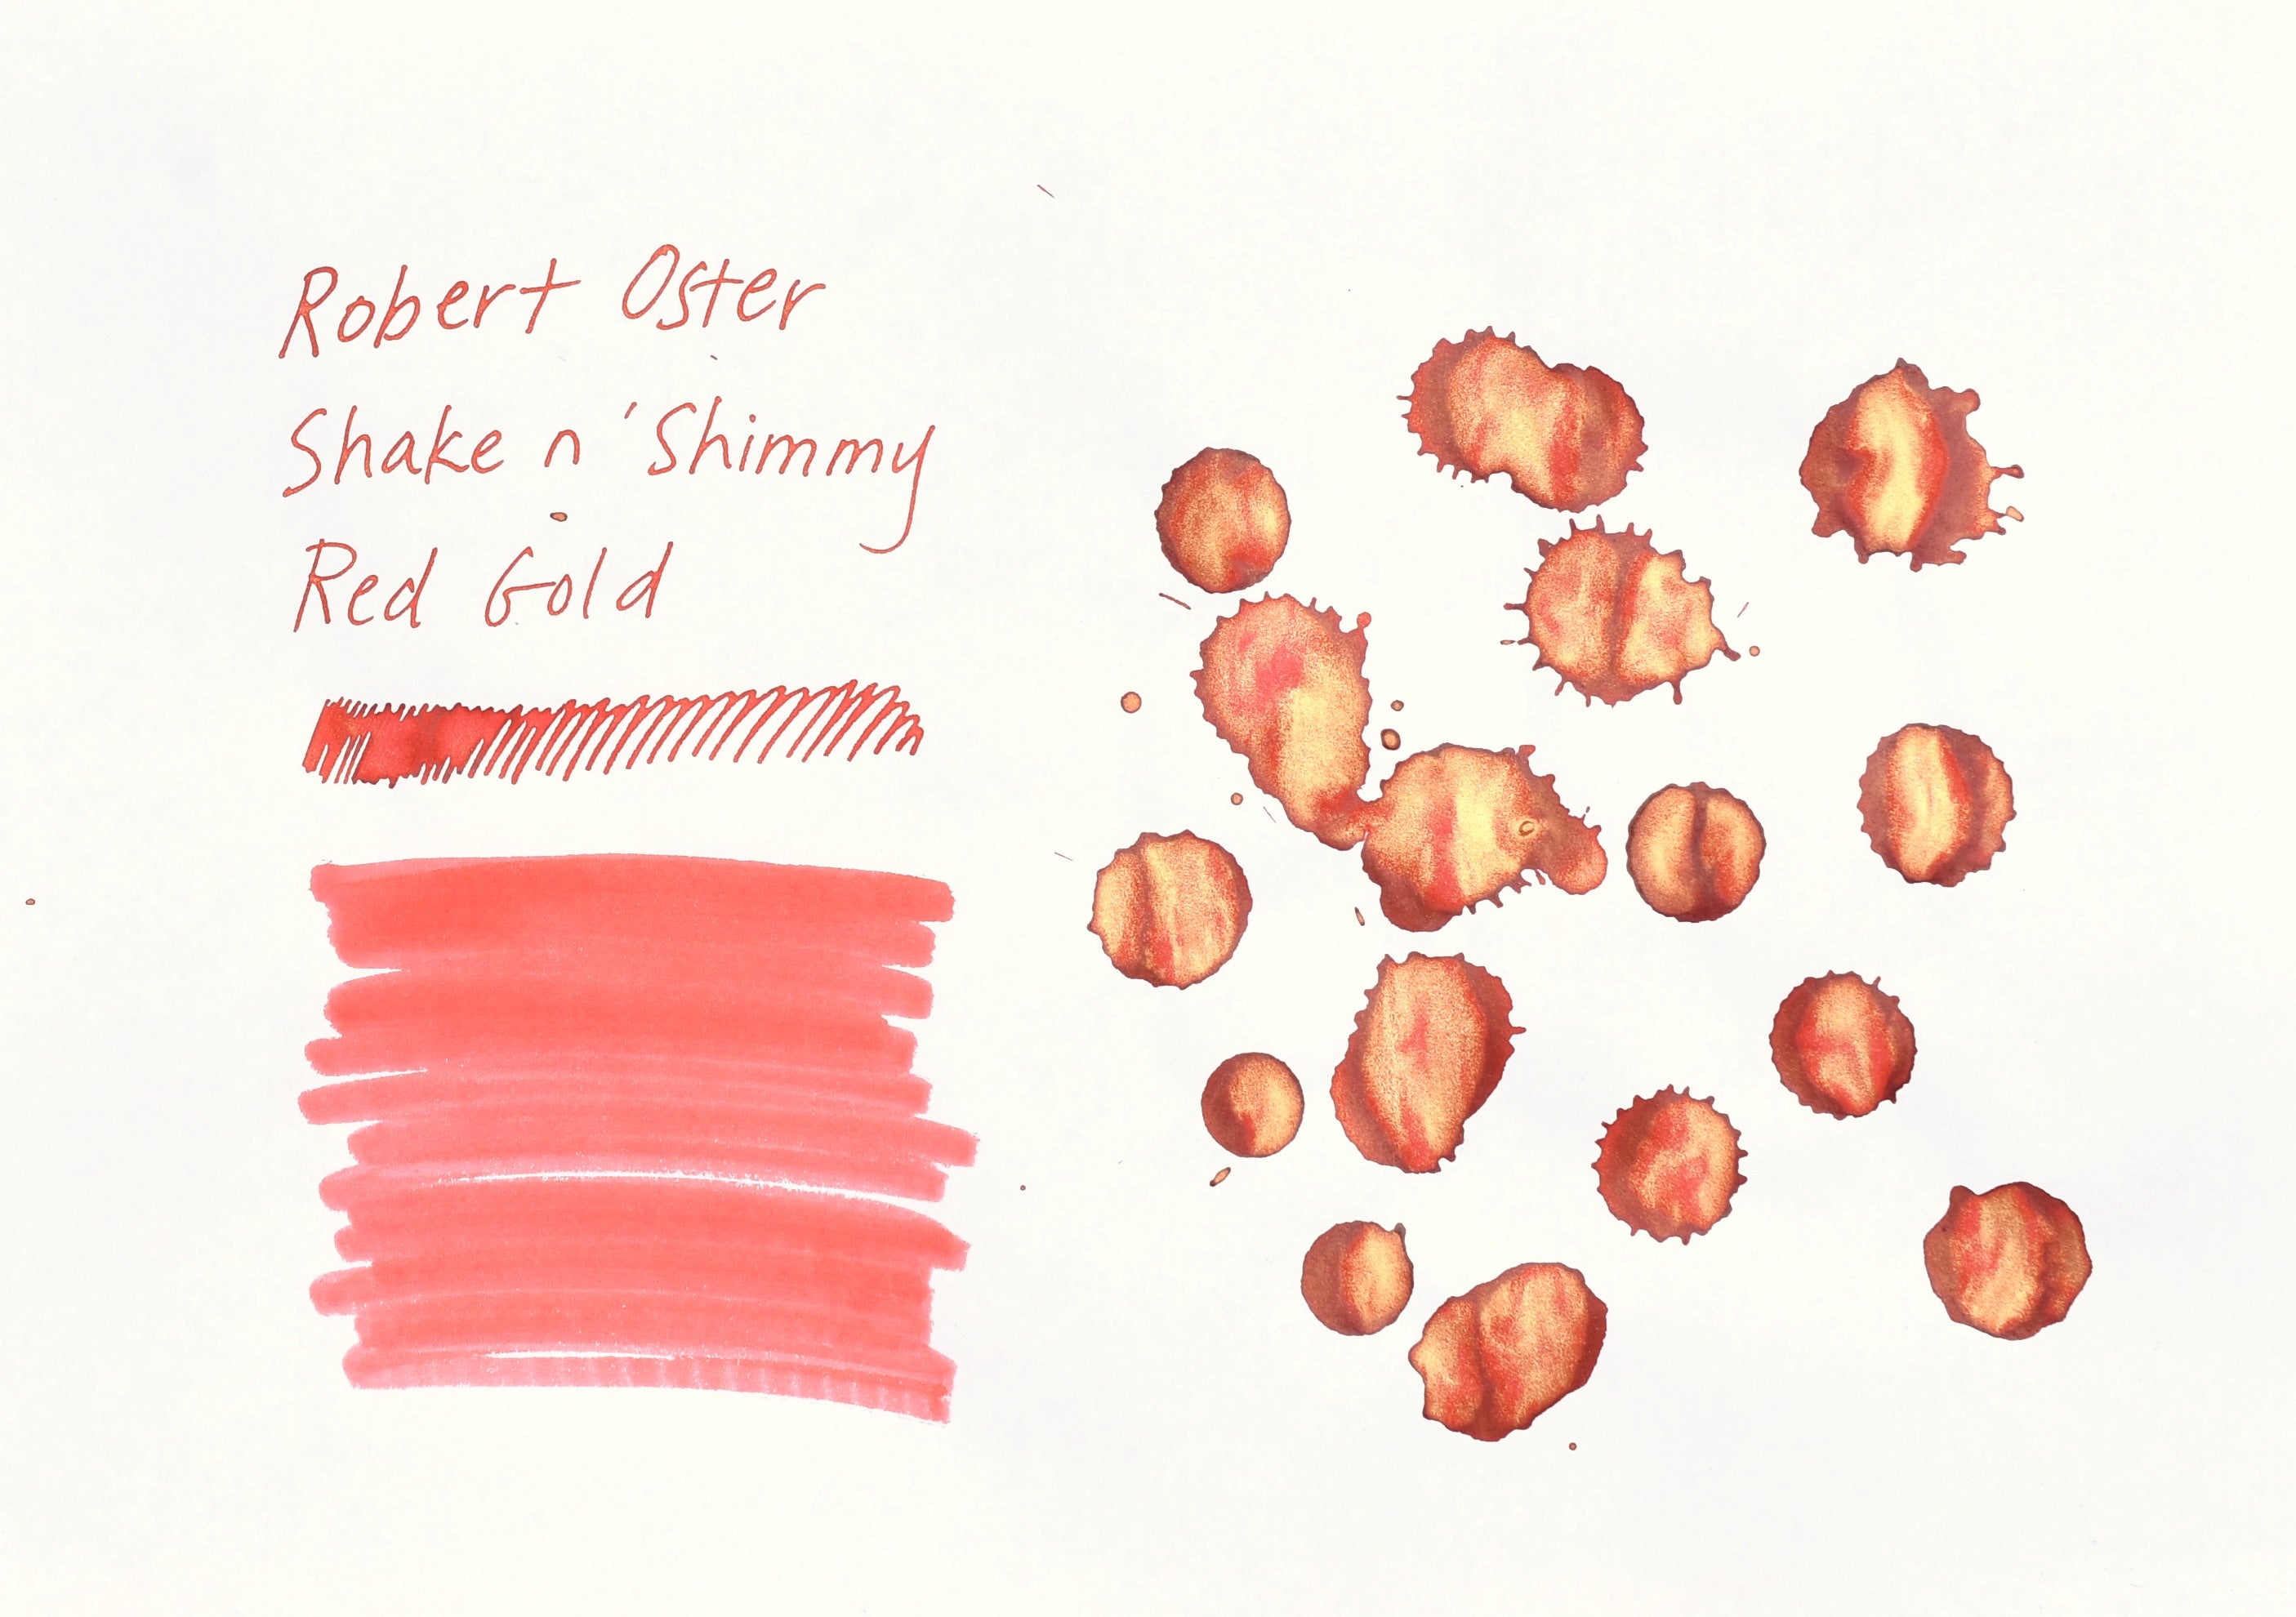 Robert Oster
Shake n' Shimmy
Red Gold